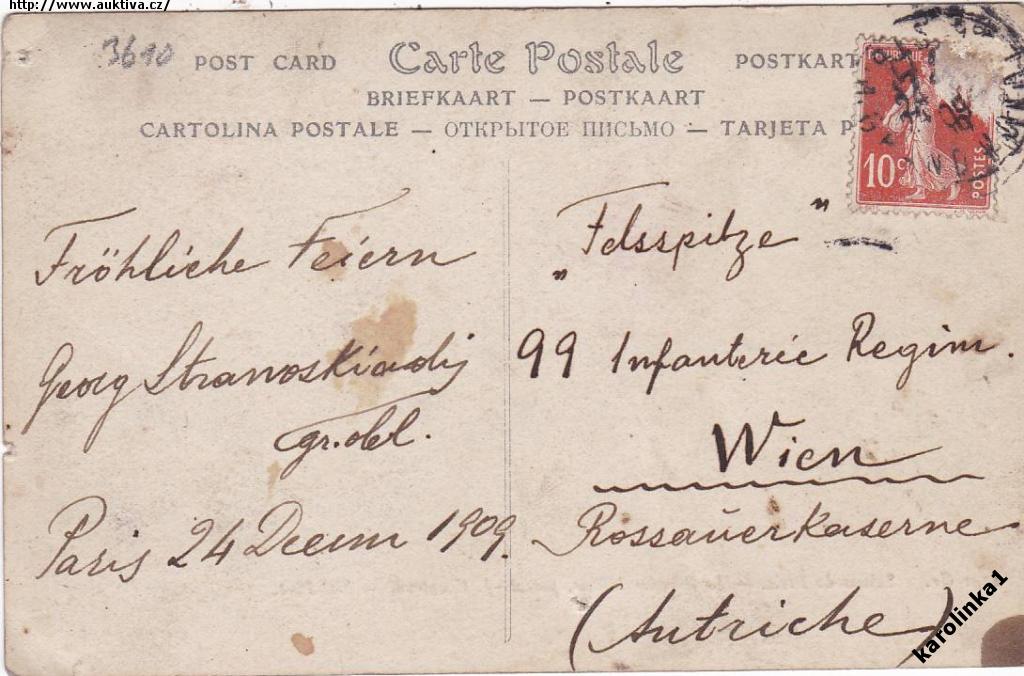 http://www.auktiva.cz/
3610
POST CARD Carte Postale POSTKART
BRIEFKAART — POSTKAART
CARTOLINA POSTALE — ОТКРЫТОЕ ПИСЬМО — TARJETA P
10 c
POSTES
Fröhliche Feiern
Georg
gr. obl.
Paris 24 Decem 1909.
„Felsspitze"
99 Infanterie Regim.
Wien
Rossauerkaserne
(Autriche)
karolinka1